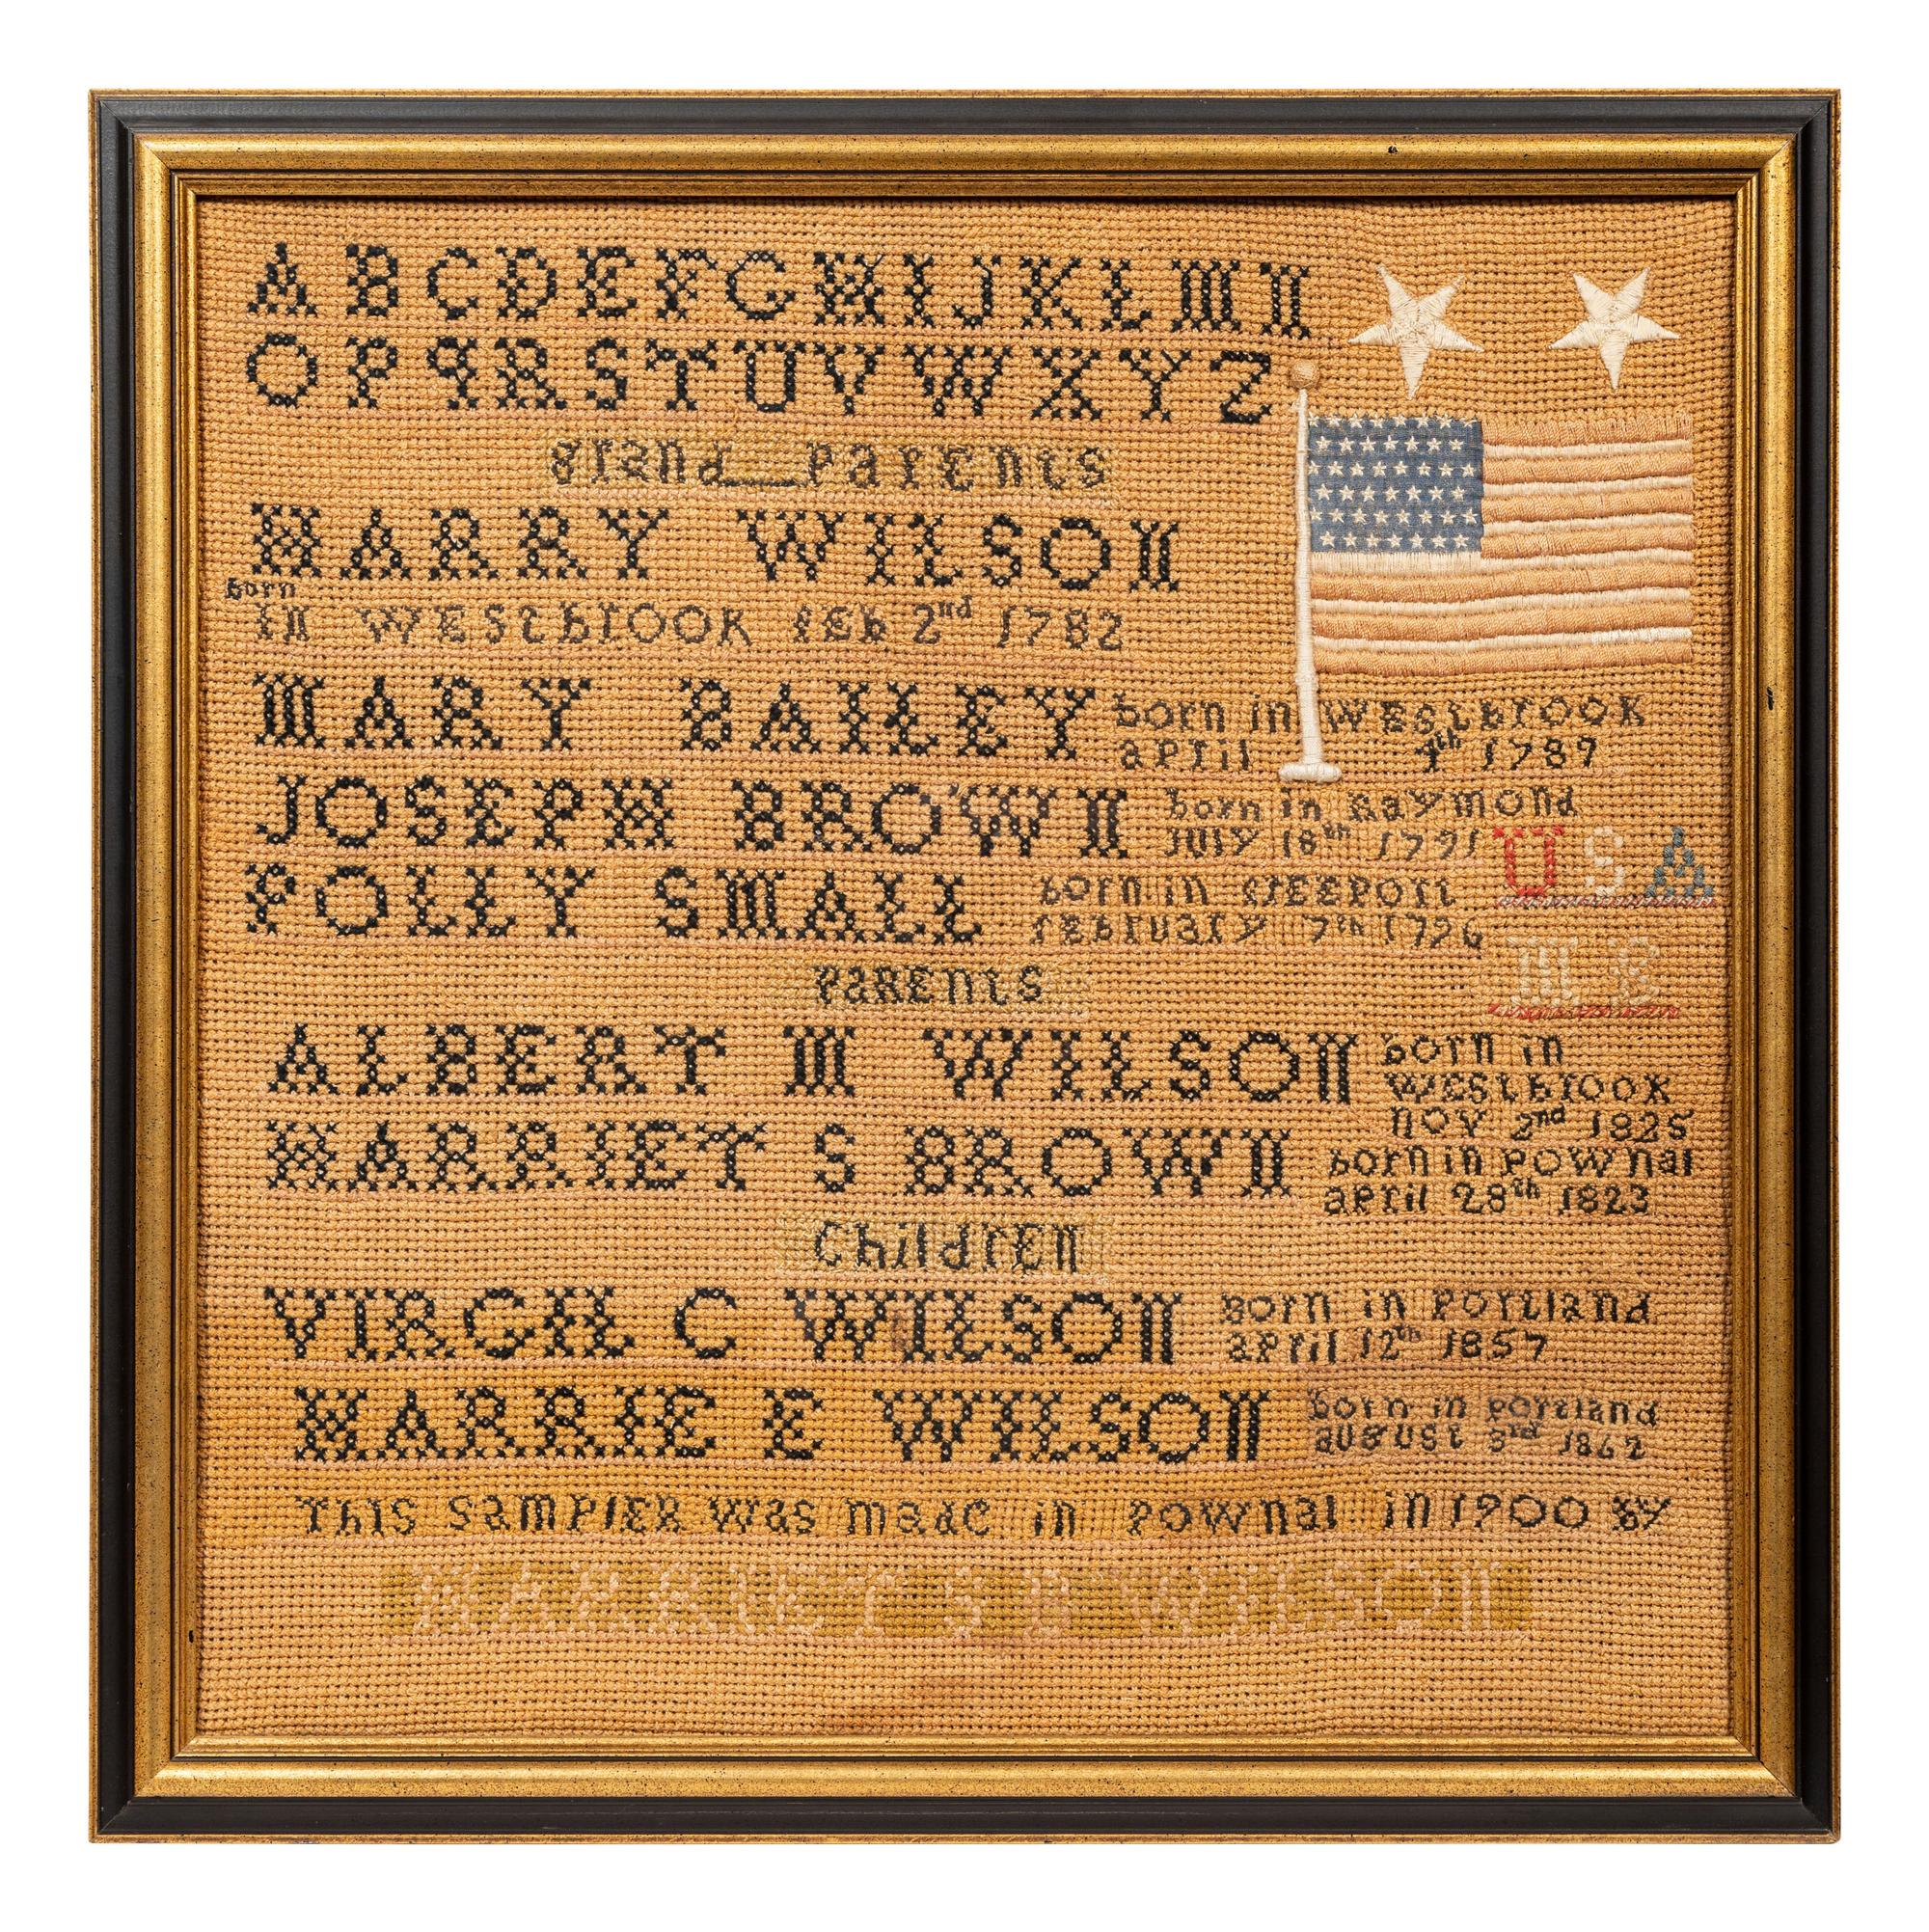 A B C D E F G H I J K L M N
O P Q R S T U V W X Y Z
Grand Parents
HARRY WILSON
born
in Westbrook Feb 2nd 1782
MARY BAILEY born in Westbrook
April 9th 1787
JOSEPH BROWN born in Raymond
July 18th 1791
U S A
POLLY SMALL born in Freeport
February 7th 1796
M E
Parents
ALBERT M WILSON born in
Westbrook
Nov 2nd 1825
HARRIET S BROWN born in Pownal
April 28th 1823
Children
VIRGIL C WILSON Born in Portland
April 12th 1857
HARRIE E WILSON born in Portland
August 3rd 1862
This Sampler was made in Pownal in 1900 by
HARRIET S B WILSON